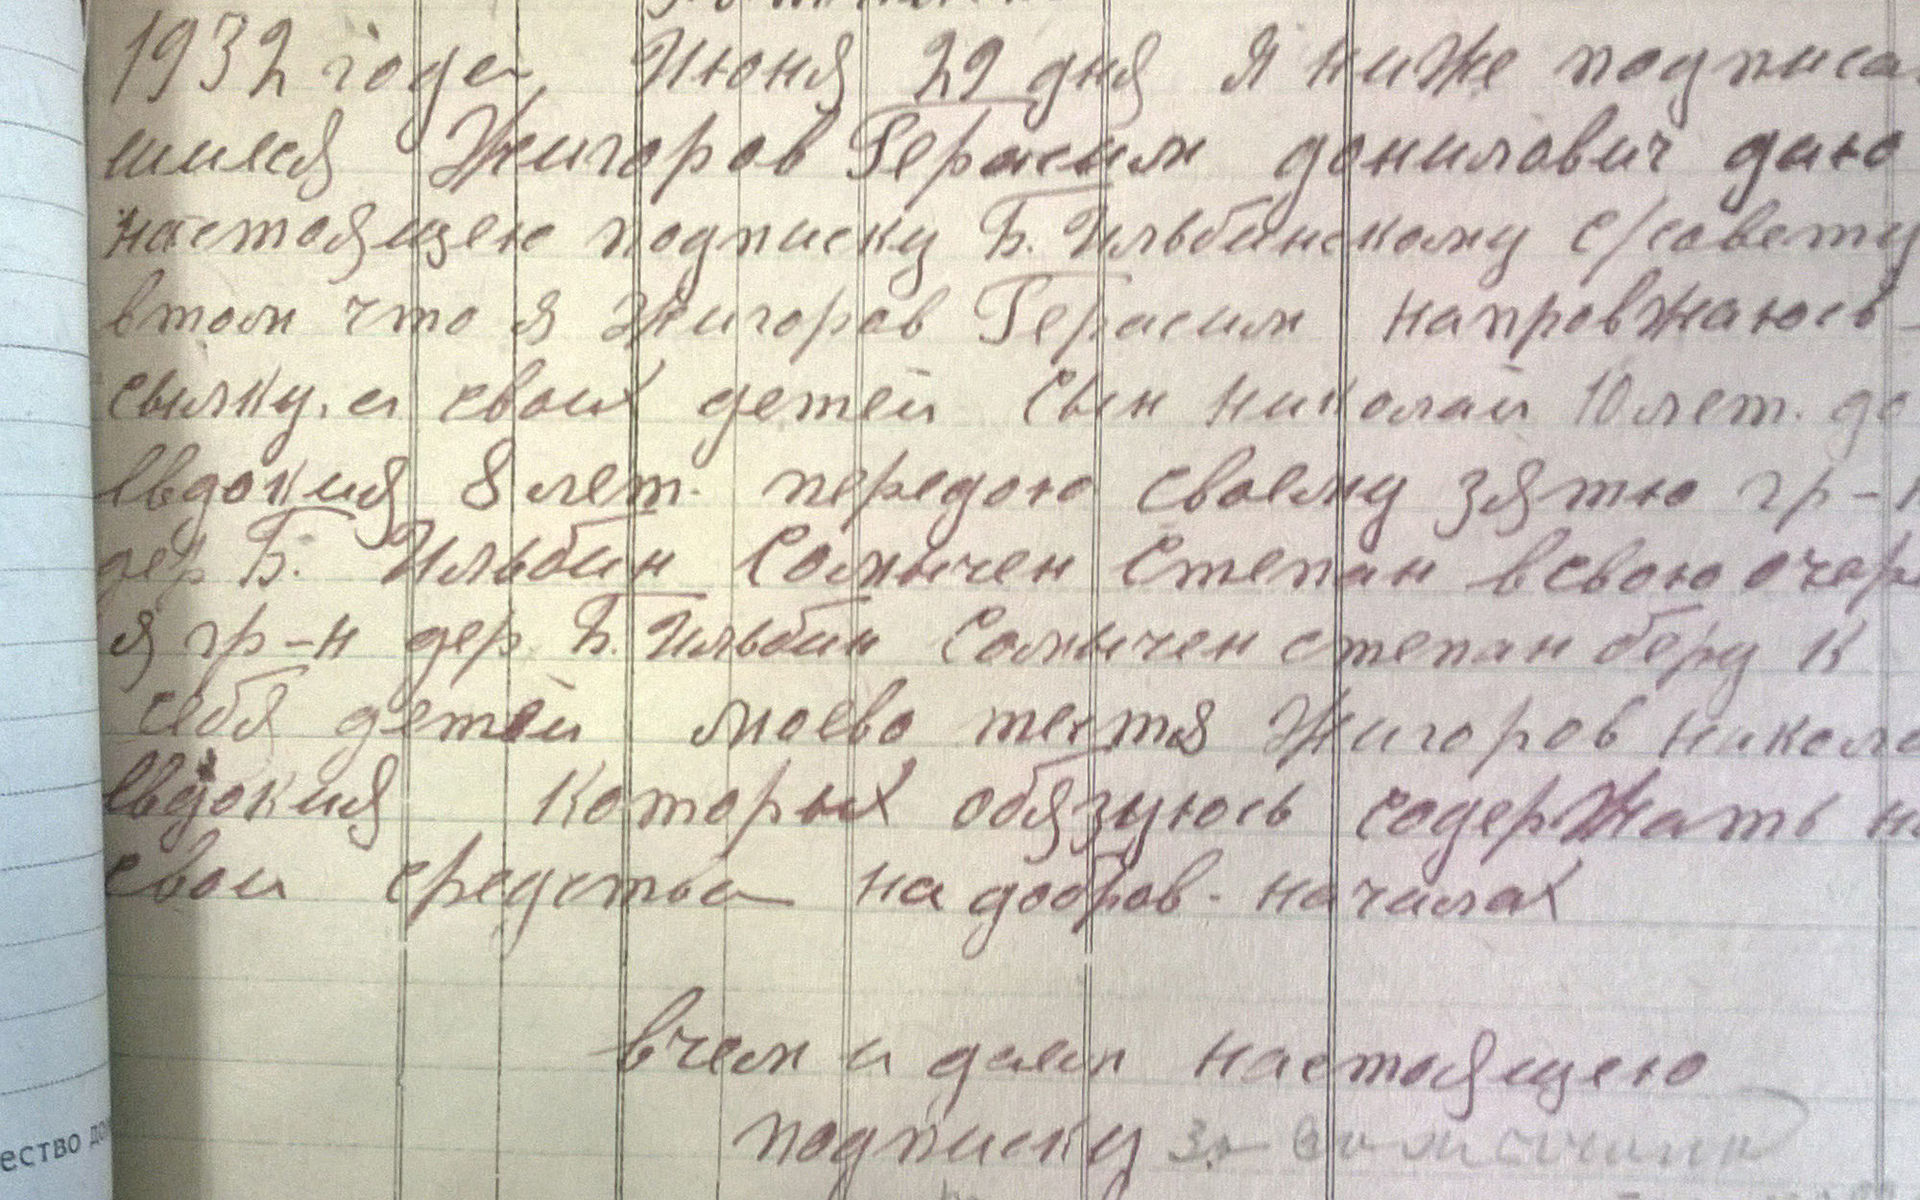 1932 года Июня 29 дня Я ниже подписа
шился Жигоров Герасим донилович даю
настоящею подписку Б. Ильбинскому с/совету
втом что я Жигоров Герасим напровжаюсь
сылку. а своих детей сын николай 10 лет. до
Евдокия 8 лет. передою своему зятю гр-н
дер Б. Ильбин Солнычен Степан всвою очере
я гр-н дер. Б. Ильбин Солнычен степан беру к
себя детей моево тестя Жигоров никола
Евдокия которых обязуюсь содержать на
свои средства на добров- началах
вчем и даем настоящею
подписку За
ество до